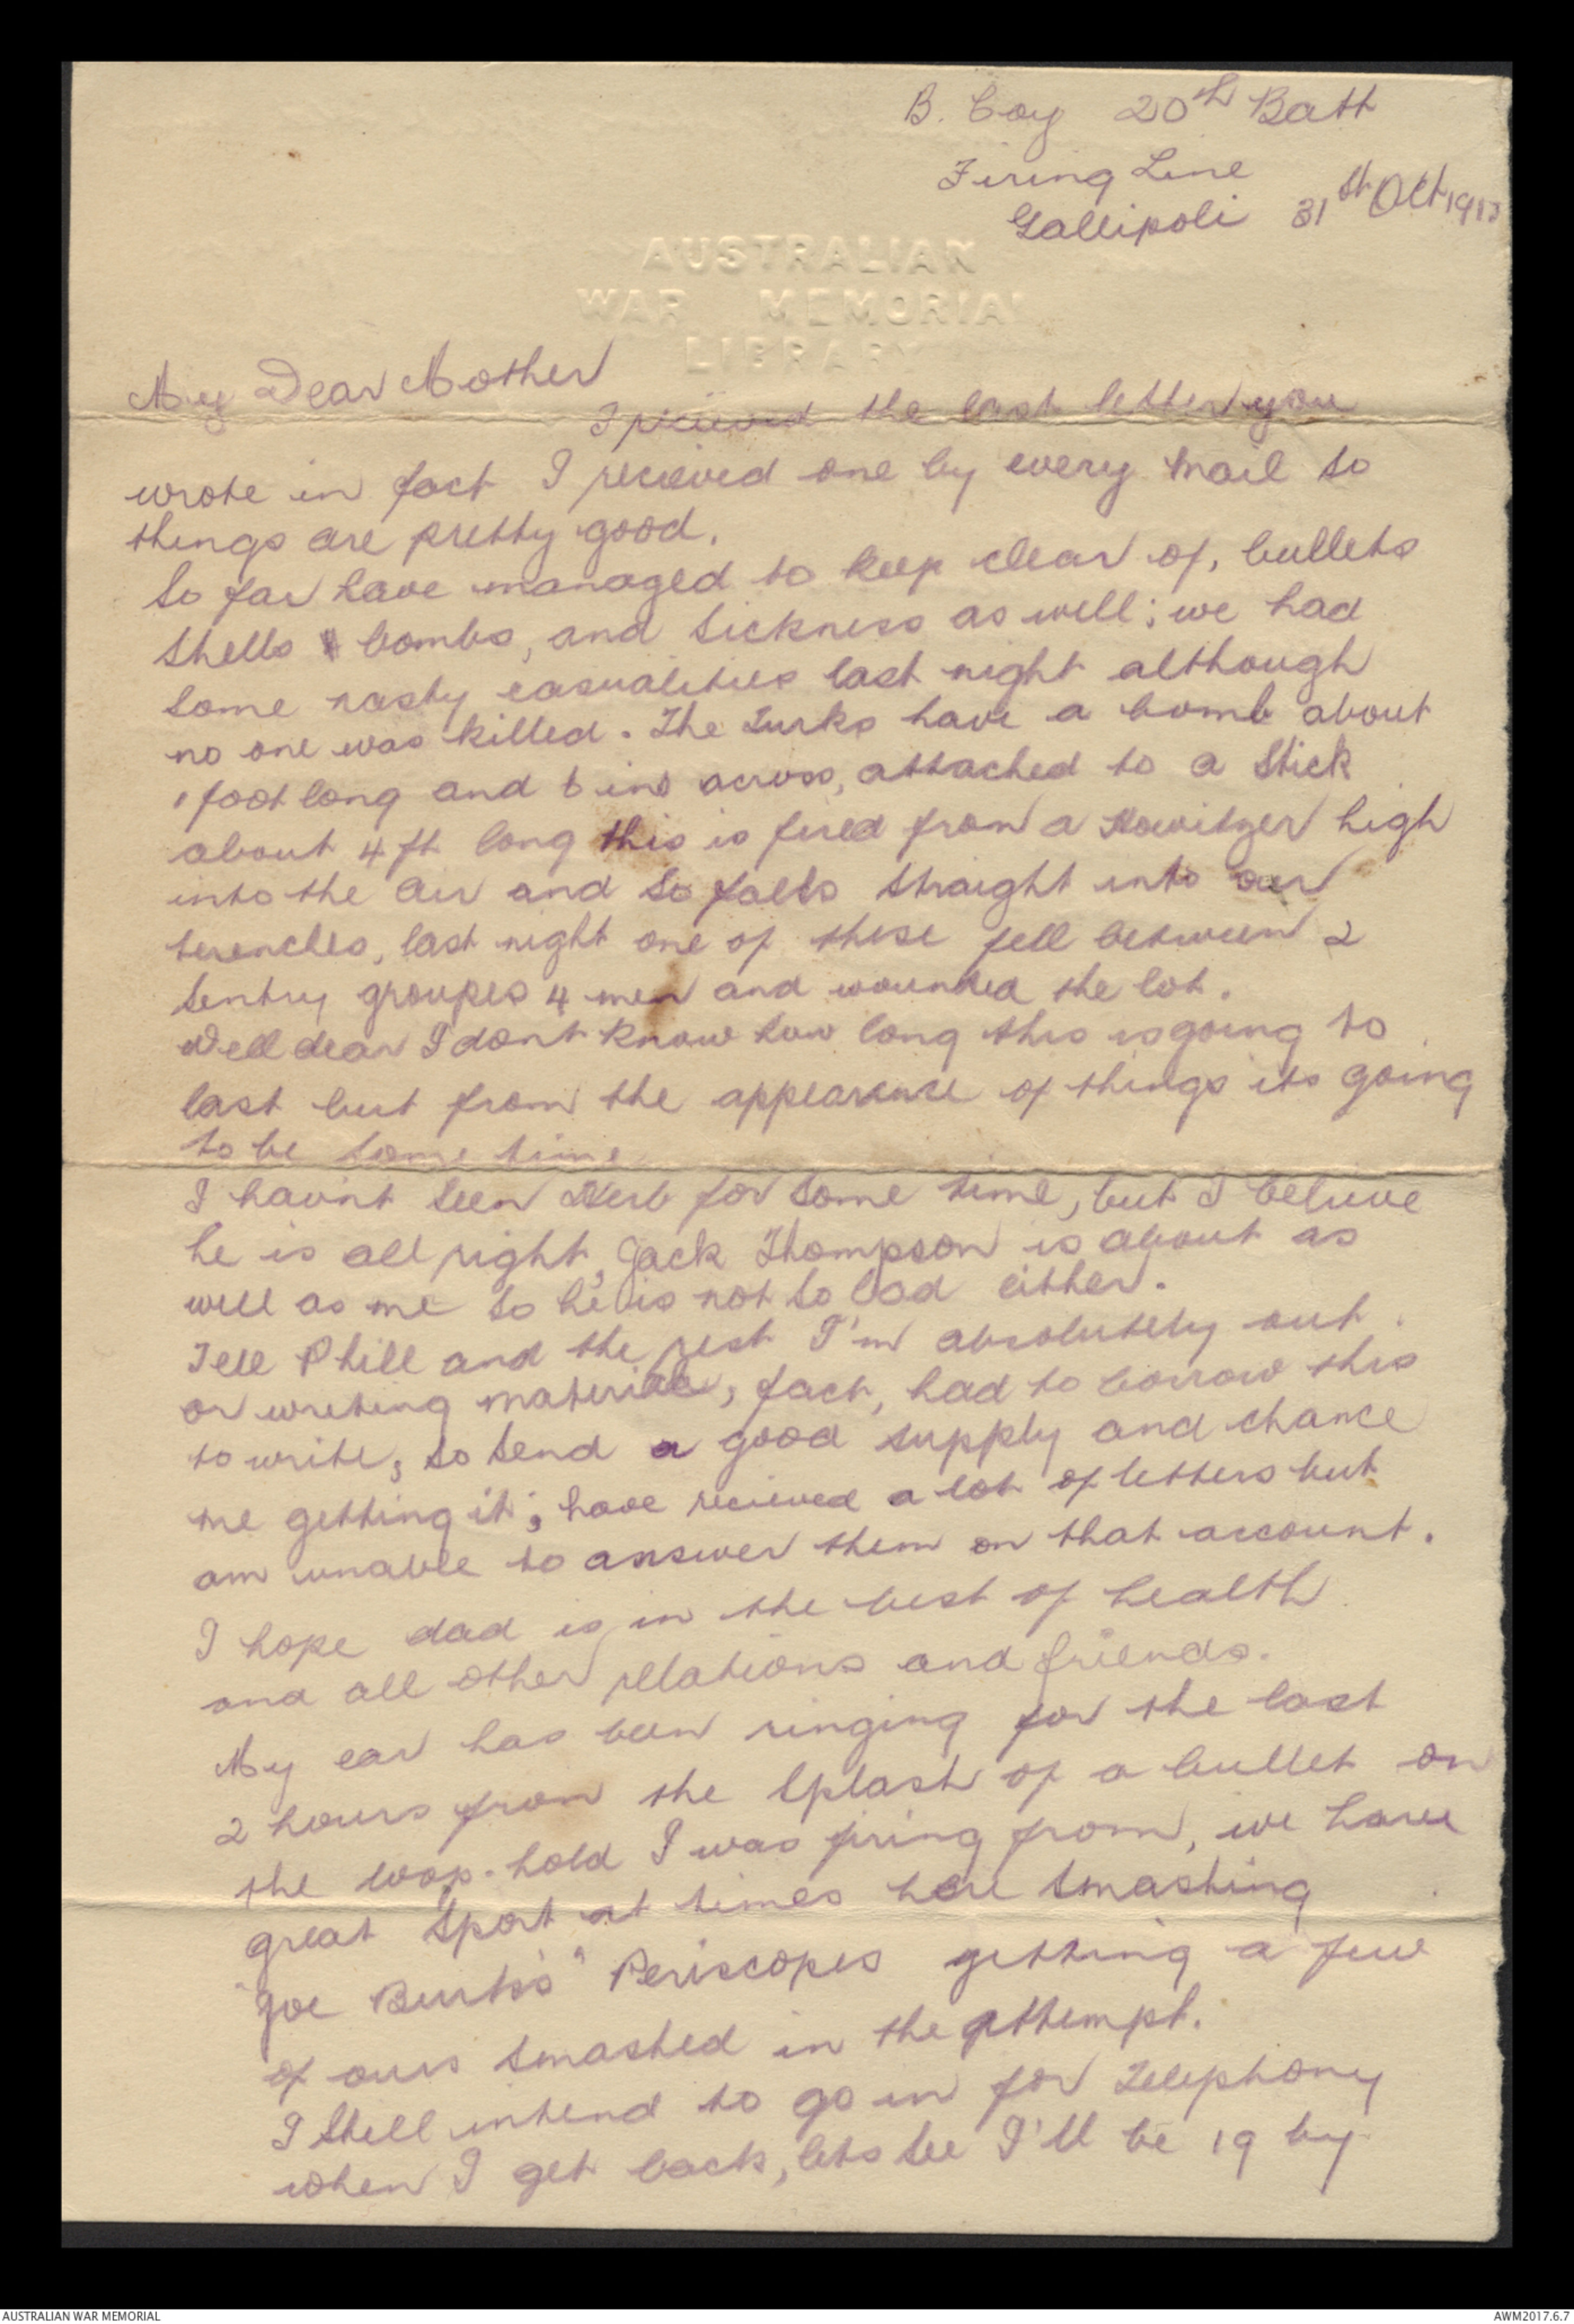 B. Coy 20th Batt
Firing Line
Gallipoli 31st Oct 1915
AUSTRALIAN
WAR MEMORIAL
LIBRARY
My Dear Mother
I recieved the last letter you
wrote in fact I recieved one by every mail so
things are pretty good.
So far have managed to keep clear of, bullets
shells & bombs, and sickness as well; we had
some nasty casualities last night although
no one was killed. The Turks have a bomb about
1 foot long and 6 ins across, attached to a stick
about 4 ft long this is fired from a Howitzer high
into the air and so falls straight into our
terenches, last night one of these fell between 2
sentry groupes 4 men and wounded the lot.
Well dear I dont know how long this is going to
last but from the appearence of things its going
to be some time
I havint seen Herb for some time, but I believe
he is all right, Jack Thompson is about as
well as me so he is not so bad either.
Tell Phill and the rest I'm absolutely out
or writing material, fact, had to borrow this
to write, so send a good supply and chance
me getting it; have recieved a lot of letters but
am unable to answer them on that account.
I hope dad is in the best of health
and all other relations and friends.
My ear has been ringing for the last
2 hours from the splash of a bullet on
the loop-hold I was firing from, we have
great sport at times here smashing
"Joe Burks" Periscopes getting a few
of ours smashed in the attempt.
I still intend to go in for Telephony
when I get back, lets see I'll be 19 by
AUSTRALIAN WAR MEMORIAL
AWM2017.6.7